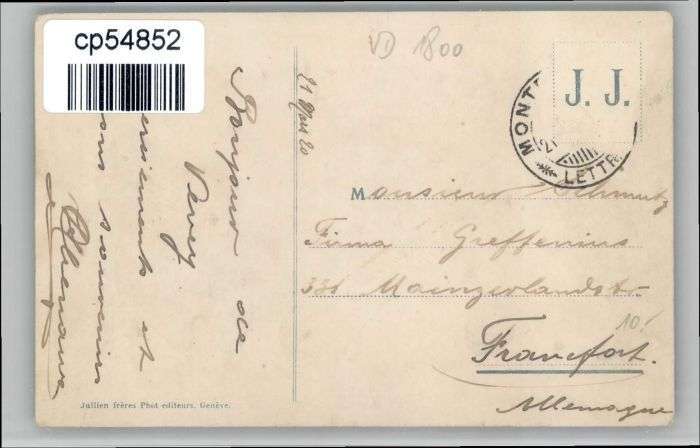 cp54852
VD 1800
J. J.
MONT
LETTR
21 Mars 20
Bonjour de
Vevey
et
souvenirs
Monsieur Schmutz
Firma Greffenius
331 Mainzerlandstr.
Francfort.
Allemagne
10.-
Jullien frères Phot editeurs, Genève.